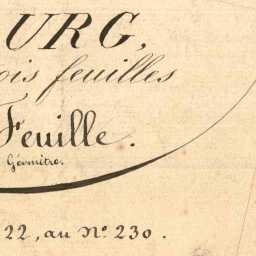 URG,
ois feuilles
Feuille.
Géomètre.
22, au Nº 230.